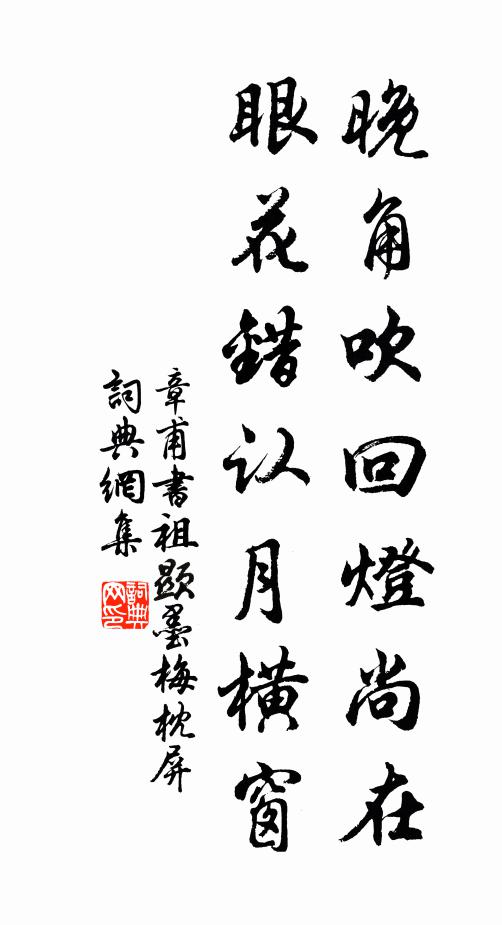 晚角吹回燈尚在
眼花錯认月橫窗
章甫書祖顯墨梅枕屏
詞典網集
詞典
网印